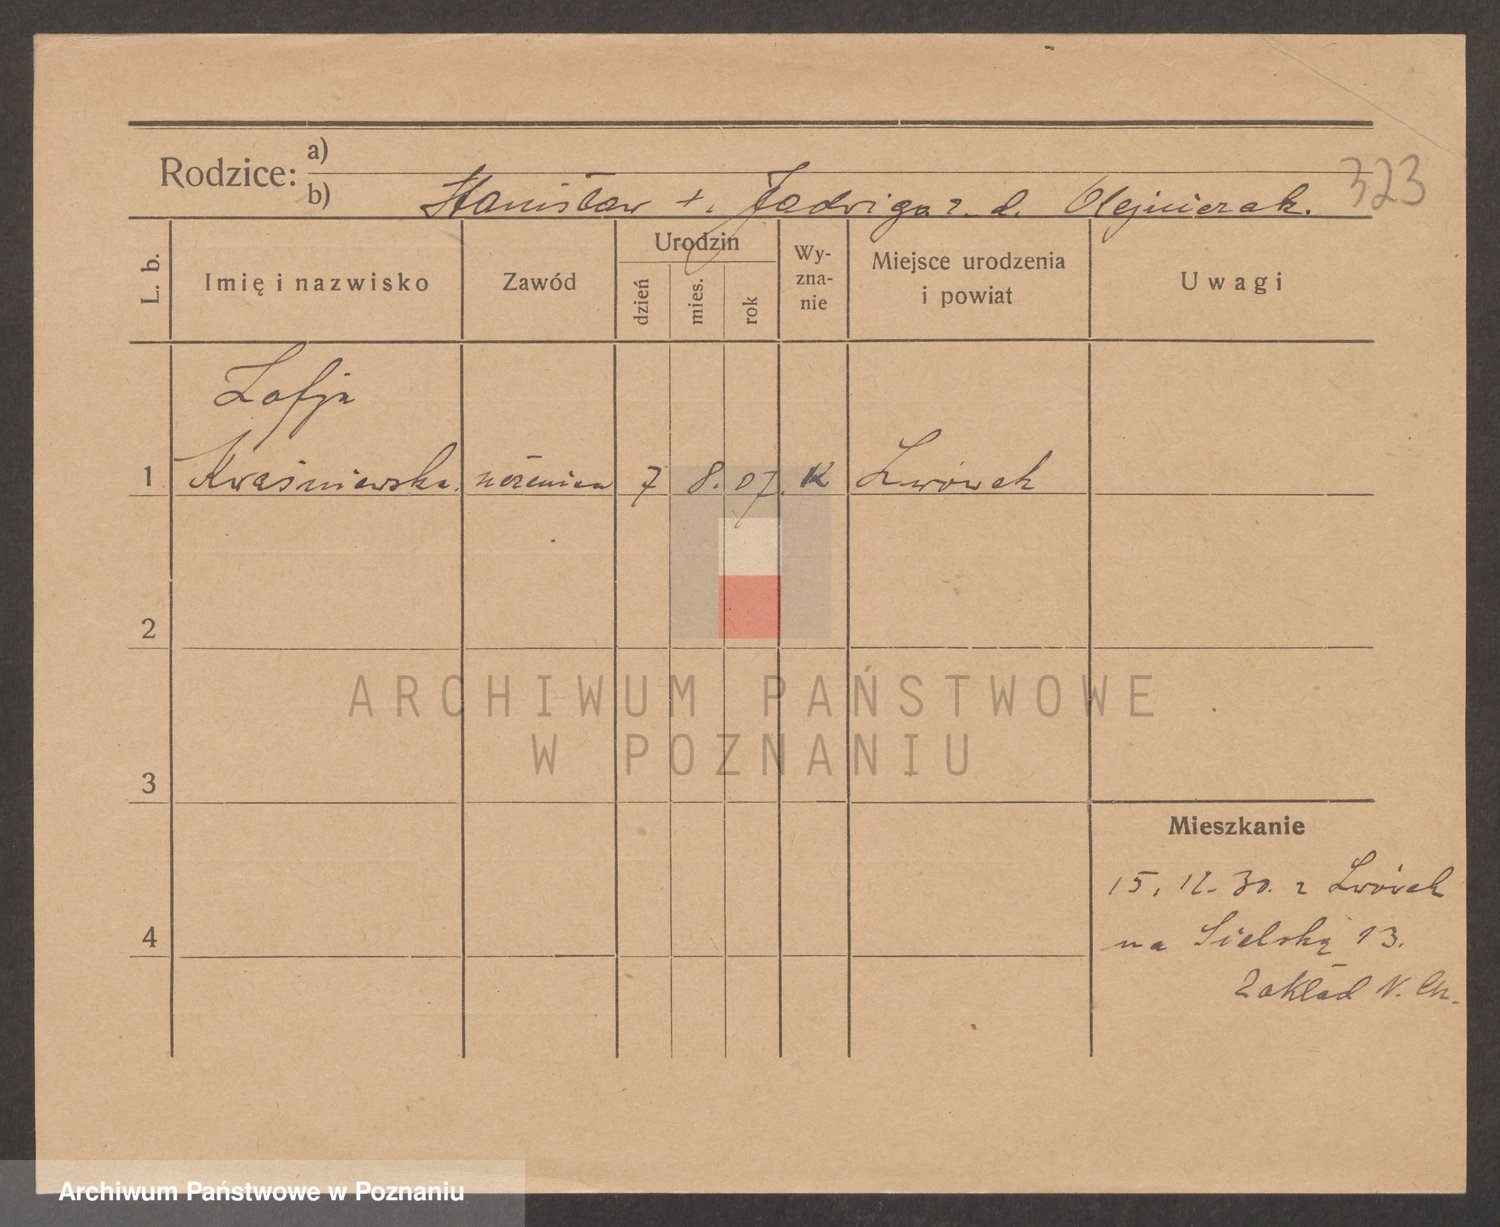 323
Rodzice: a)
b) Stanisław +. Jadwiga z. d. Olejniczak.
L. b. Imię i nazwisko Zawód Urodzin dzień mies. rok Wyznanie Miejsce urodzenia i powiat Uwagi
Zofja
1 Kwaśniewska. uczenica 7 8. 07. K Lwówek
2
ARCHIWUM PAŃSTWOWE
W POZNANIU
3
Mieszkanie
15. 12. 30. z Lwówek
4 na Sielską 13.
Zakład
Archiwum Państwowe w Poznaniu